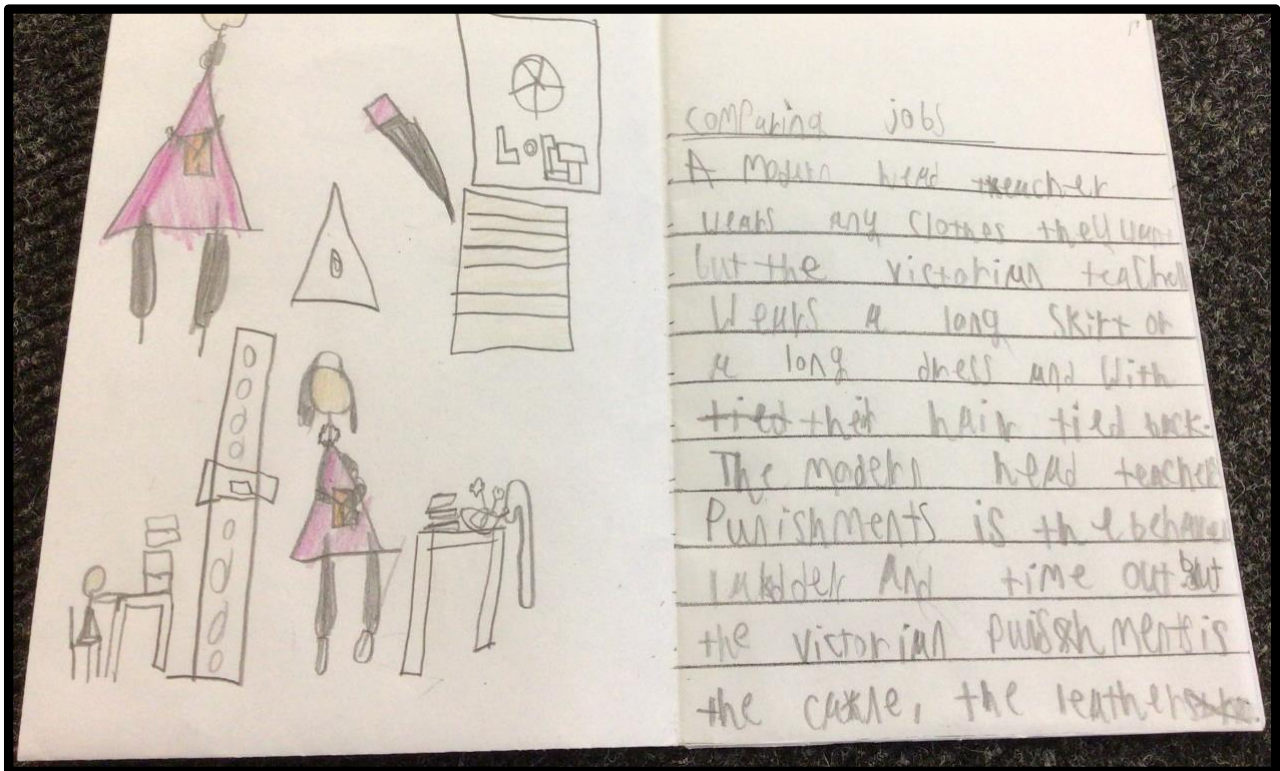 comparing jobs
A modern head teacher
wears any clothes they wan
but the victorian teacher
Wears a long skirt or
a long dress and with
tied their hair tied back.
The modern head teacher
Punishments is the behaviour
ladder And time out but
the victorian punishments is
the cane, the leather